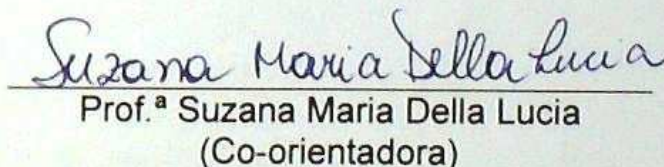 Suzana Maria Della Lucia
Prof.ª Suzana Maria Della Lucia
(Co-orientadora)